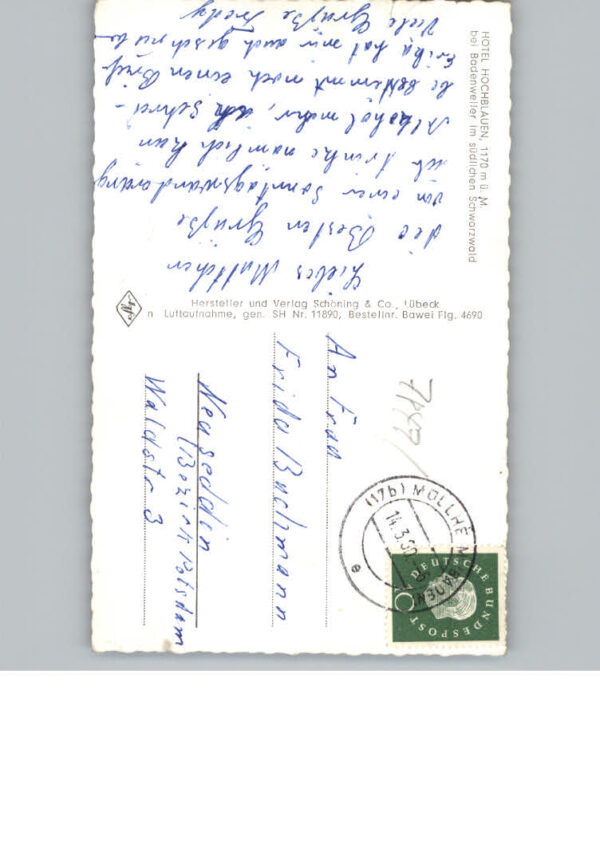 HOTEL HOCHBLAUEN, 1170 m ü. M.
bei Badenweiler im südlichen Schwarzwald
Liebes Muttchen
die Besten Grüße
von einer Sonntagswanderung
ich trinke nämlich kein
Alkohol mehr, schrei-
be bestimmt noch einen Brief
Erika hat mir auch geschrieben
Viele Grüße Fredy
Hersteller und Verlag Schöning & Co., Lübeck
n Luftaufnahme, gen. SH Nr. 11890, Bestellnr. Bawei Flg. 4690
Agfa
(17b) MÜLLHEIM
BADEN
14.3.60
e
DEUTSCHE BUNDESPOST
An Frau
Frida Bachmann
Neuseddin
(Bezirk Potsdam
Waldstr 3